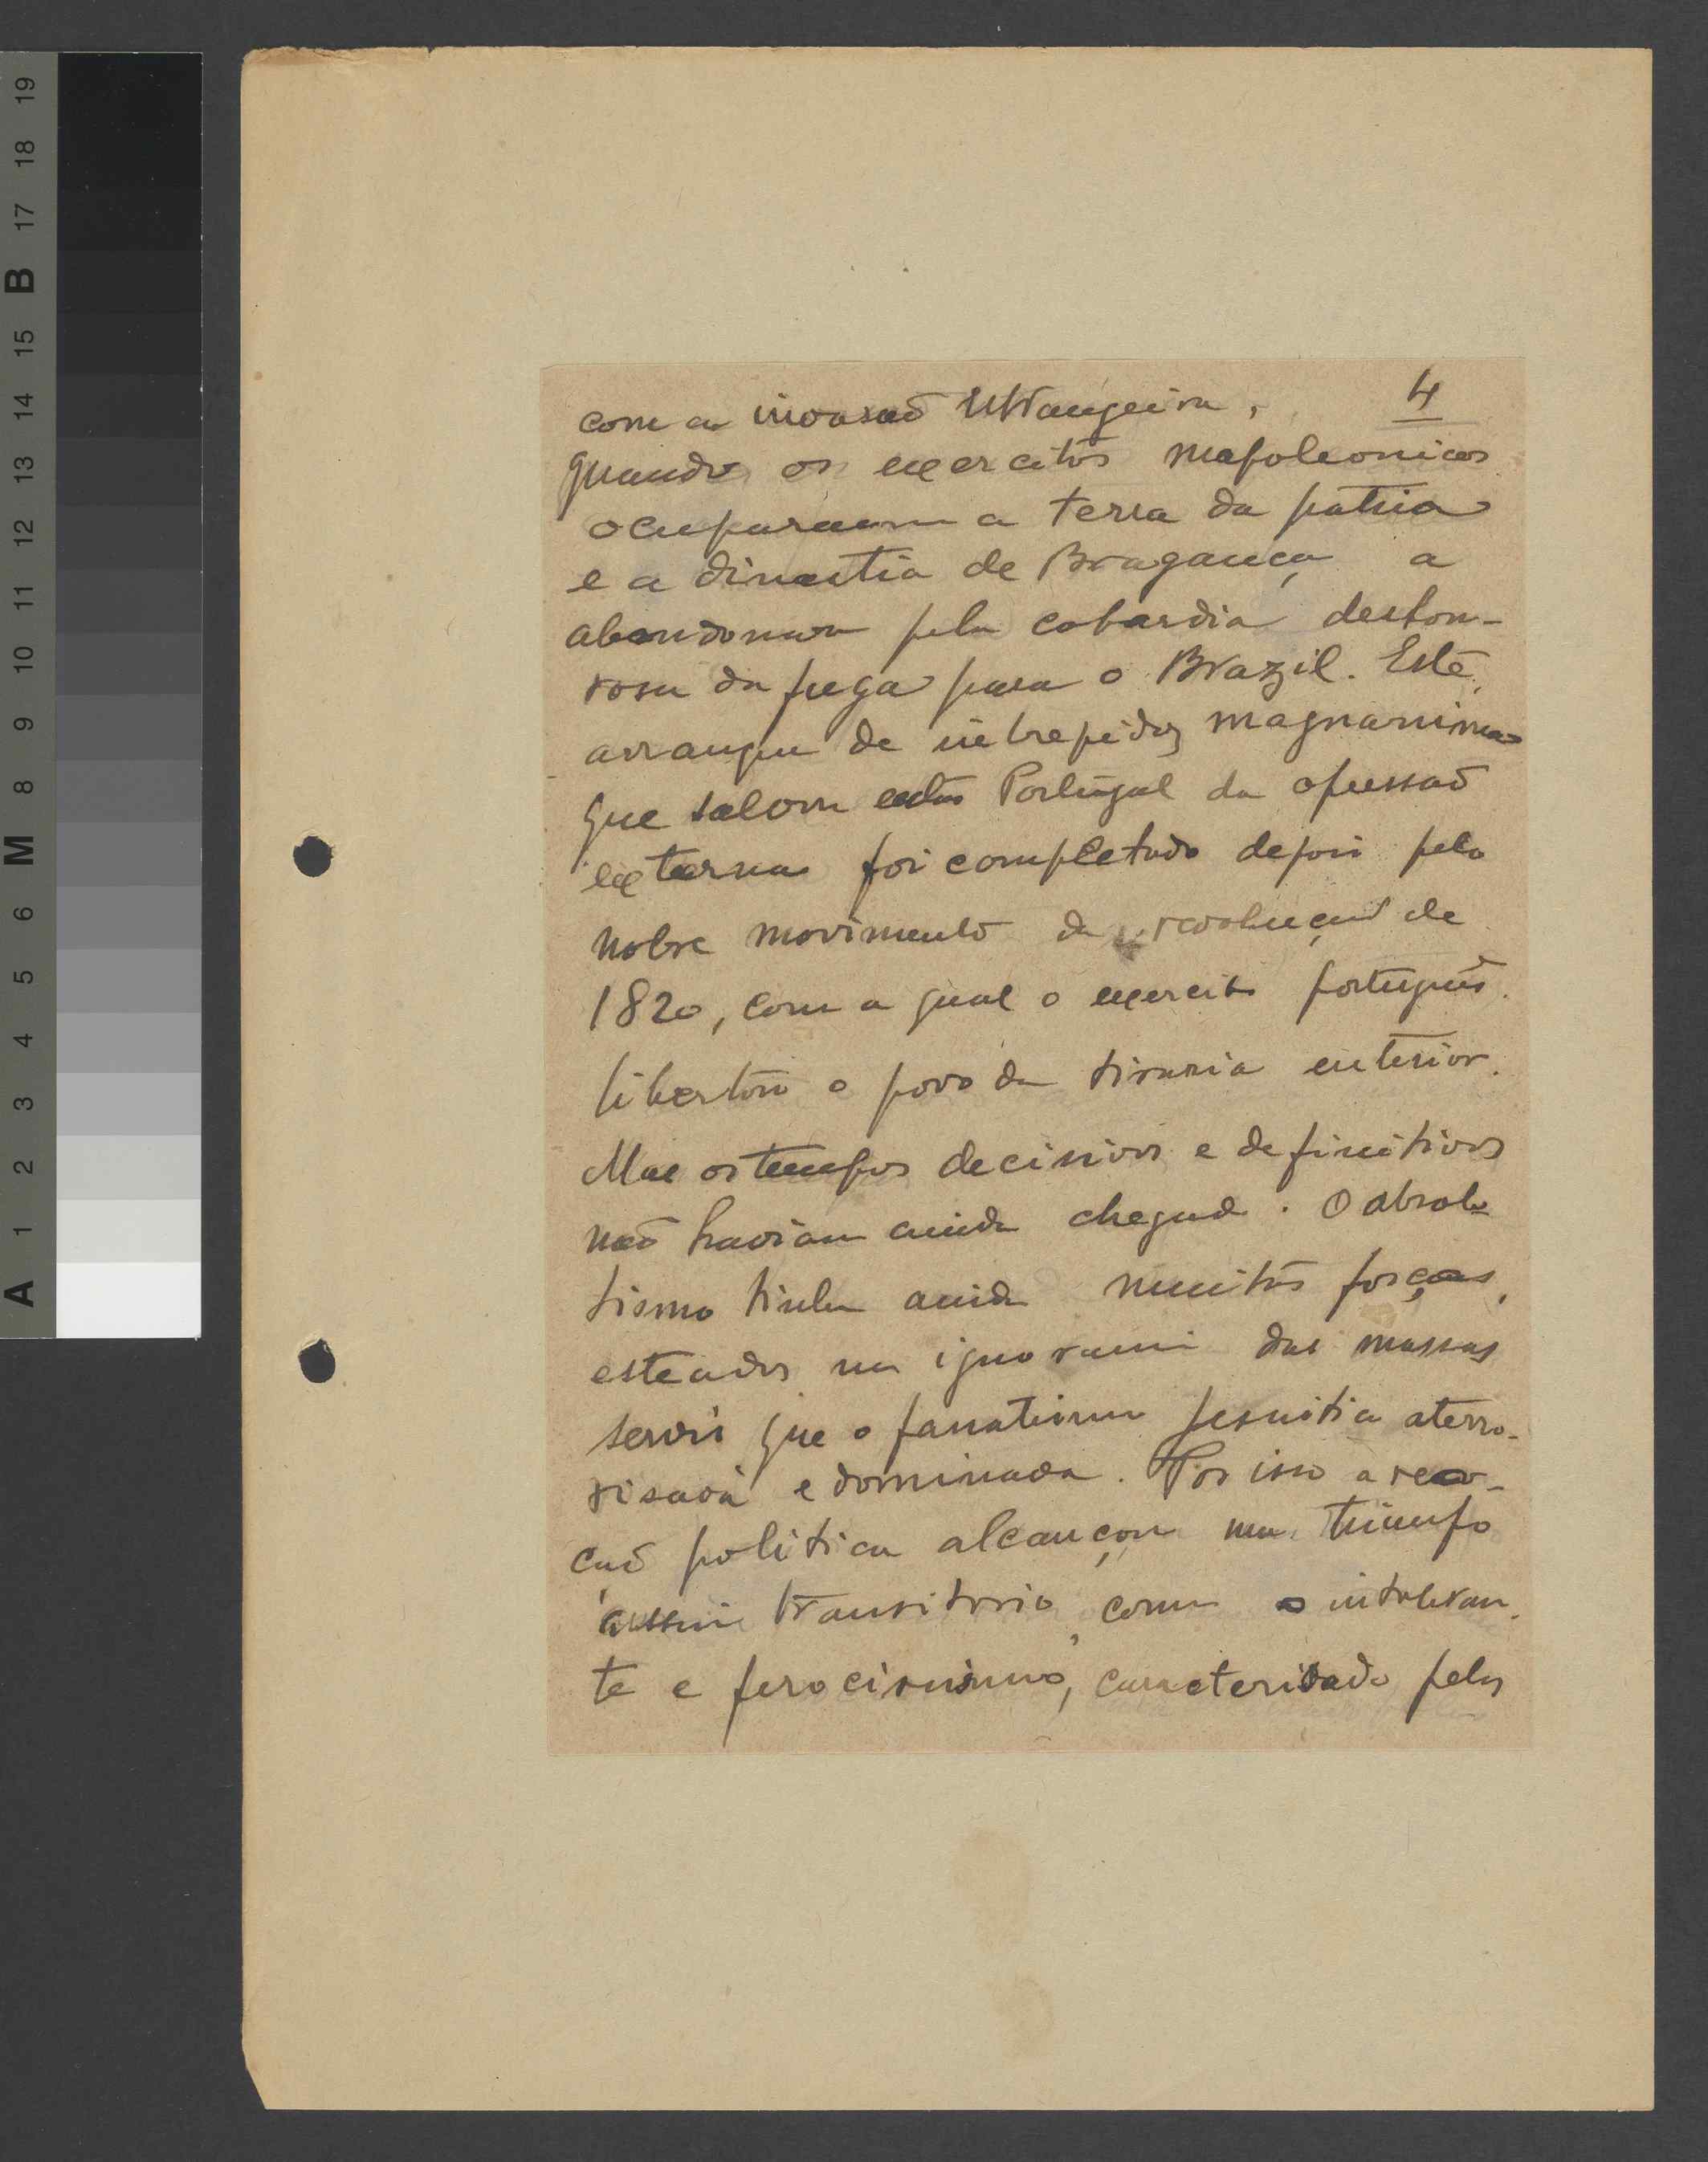 com a invasaõ estrangeira, 4
quando os exercitos napoleonicos
ocuparam a terra da patria
e a dinastia de Bragança a
abandonava pela cobardia deshon-
rosa da fuga para o Brazil. Este
arranque de intrepidez magnanima
que salvou então Portugal da opressaõ
externa foi completado depois pelo
nobre movimento da revoluçaõ de
1820, com a qual o exercito português
libertou o povo da tirania interior.
Mas os tempos decisivos e definitivos
naõ haviam ainda chegado. O absolu-
tismo tinha ainda muitas forças,
esteados na ignorancia das massas
servis que o fanatismo jesuitico aterro-
risava e dominava. Por isso a reac-
çaõ politica alcançou um triunfo
assim transitorio, como o intoleran-
te e ferocissimo, caracterisado pelos